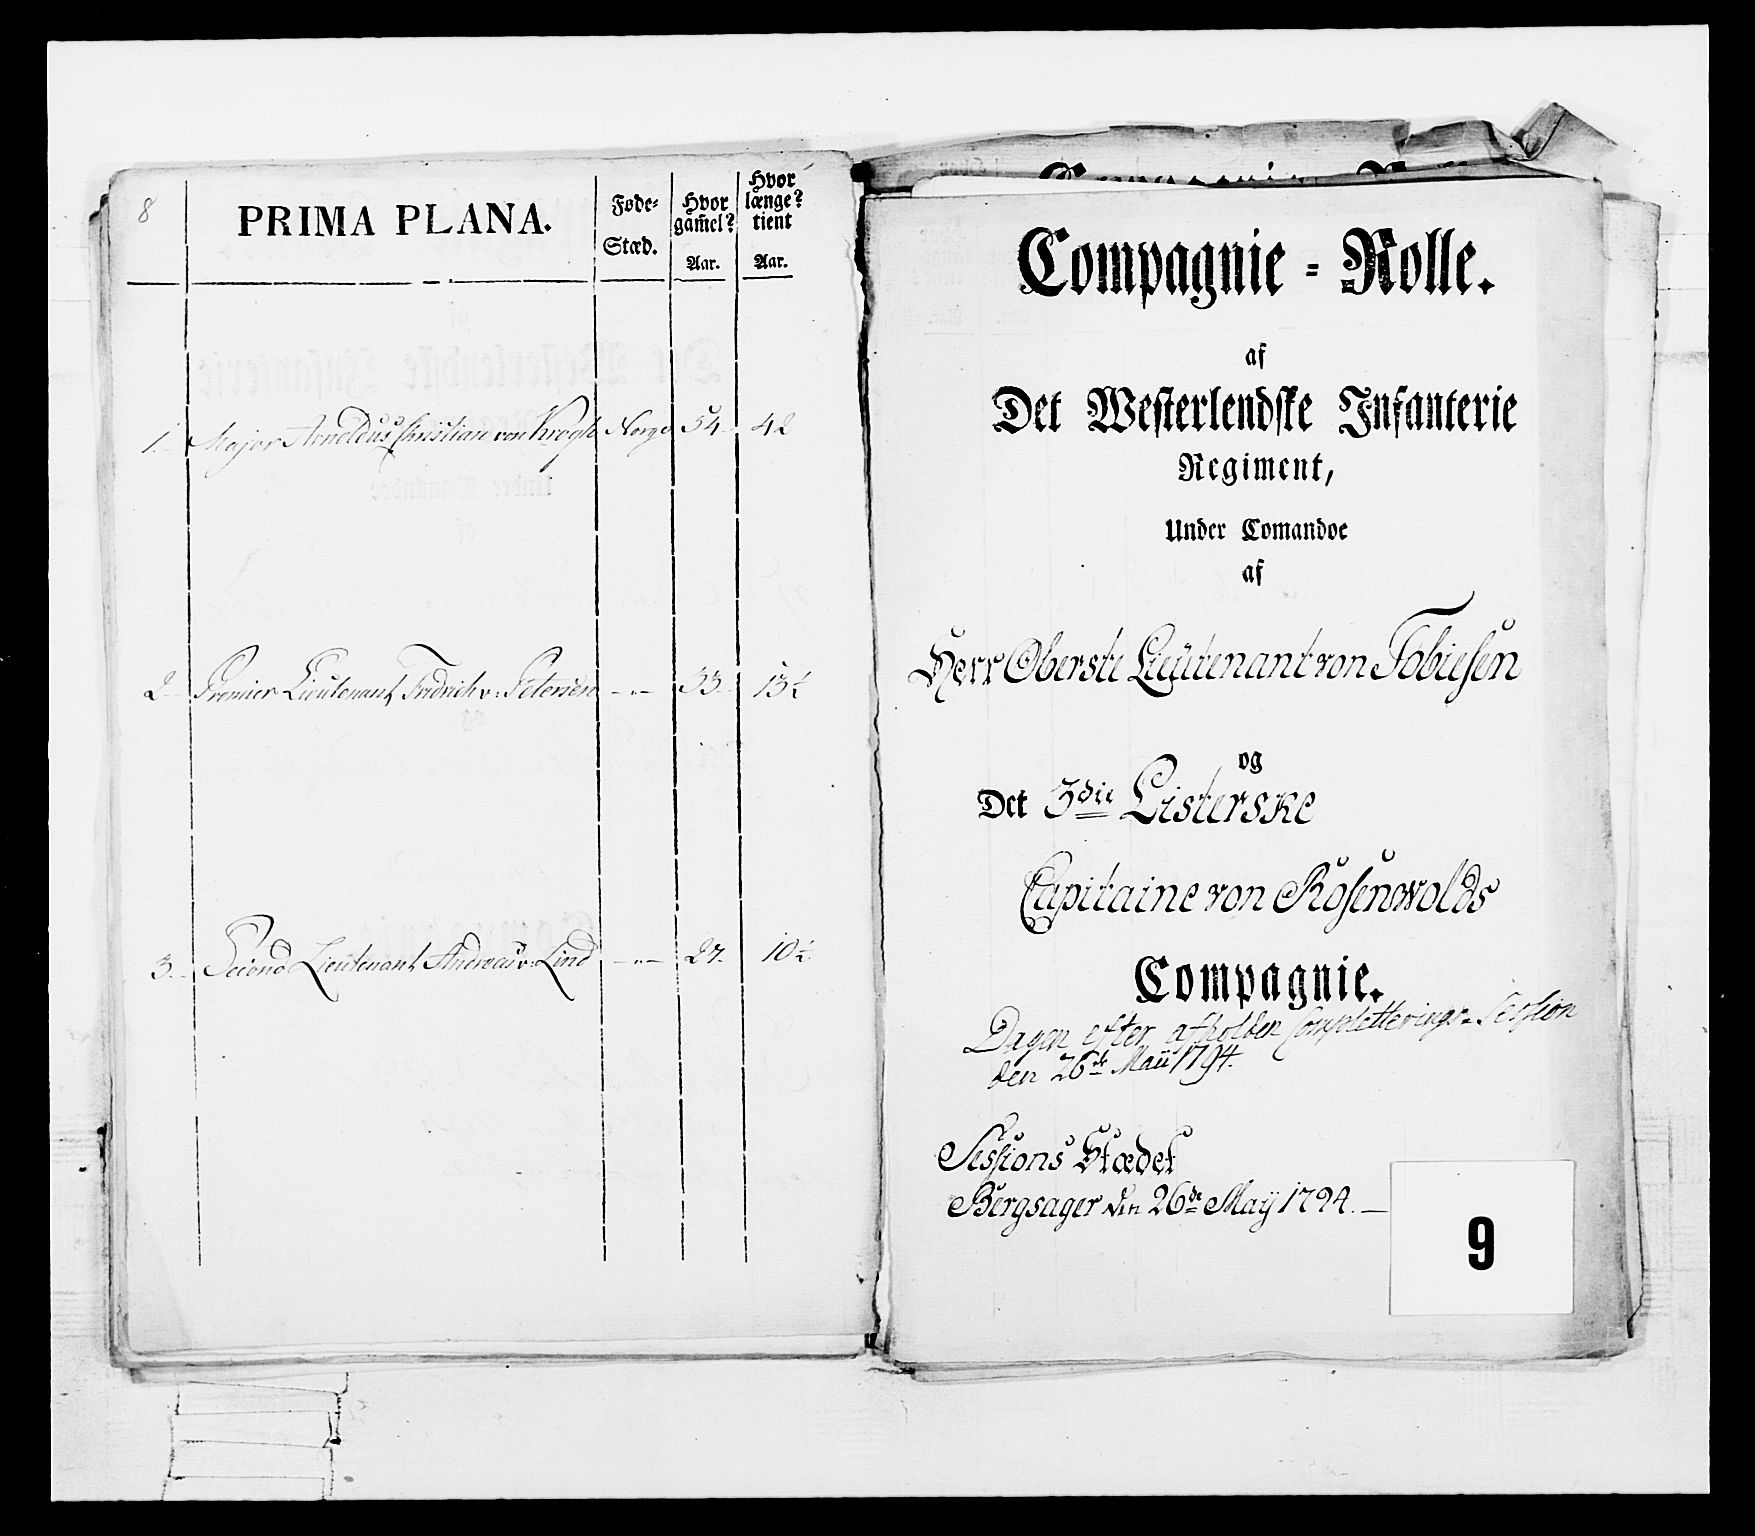 8
PRIMA PLANA.
Føde-
Stæd.
Hvor
gam̄el?
Aar.
Hvor
længe?
tient
Aar.
1. Major Arnoldus Christian von Krogh Norge 54 42
2 Premier Lieutenant Fridrich v: Petersen -"- 33 13½
3. Second Lieutenant Andreas v: Lind -"- 27. 10½
Compagnie-Rolle.
af
Det Westerlendske Infanterie
Regiment,
Under Comandoe
af
Herr Oberste Lieutenant von Tobiesen
og
Det 3die Listerske
Capitaine von Rosenwolds
Compagnie.
Dagen efter afholden Completterings-Session
den 26de Maii 1794.
Sessions Stædet
Bergsager den 26de Maÿ 1794.
9